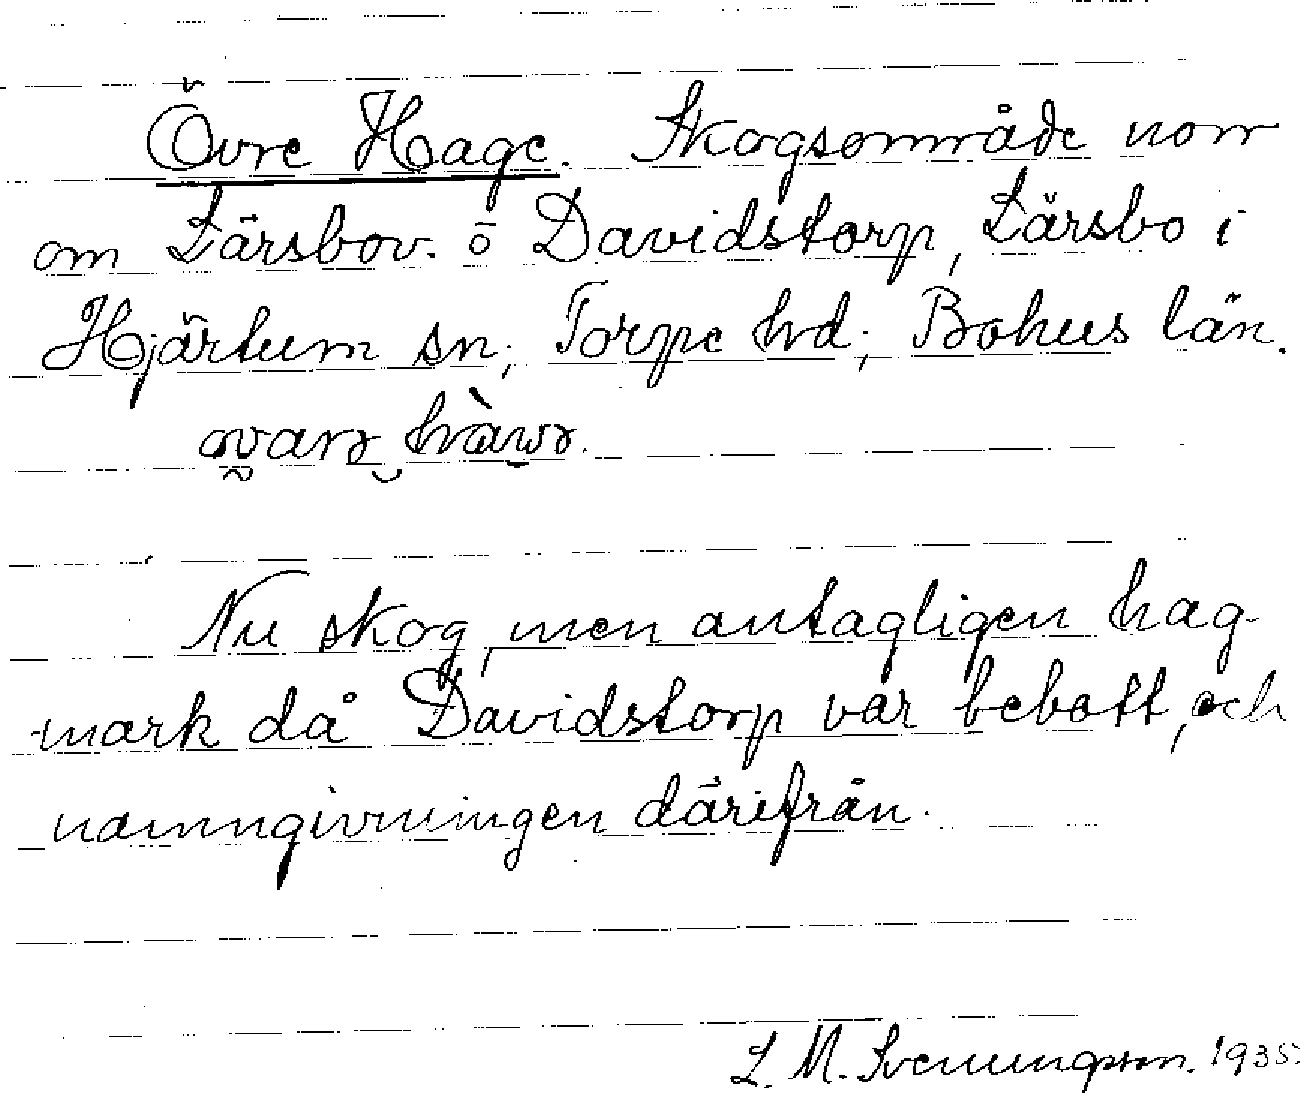 Övre Hage. Skogsområde norr
om Lärsbov. o Davidstorp, Lärsbo i
Hjärtum sn; Torpe hd; Bohus län.
Nu skog, men antagligen hag-
mark då Davidstorp var bebott, och
namngivningen därifrån.
L. M. Svenungsson. 1935.